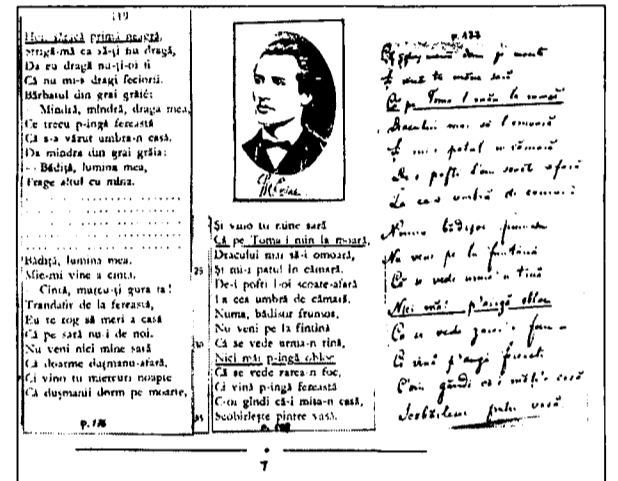 119
strigă-mă ca să-ți fiu dragă,
Da eu dragă nu-ți-oi fi
Că nu mi-s dragi feciorii.
Bărbatul din grai grăie:
Mîndră, mîndră, draga mea,
Ce trecu p-îngă fereastă
Că s-a văzut umbra-n casă.
Da mîndra din grai grăia:
-- Bădiță, lumina mea,
Trage altul cu mîna.
Bădiță, lumina mea,
Mie-mi vine a cînta.
Cîntă, muncu-ți gura ta!
Trandafir de la fereastă,
Eu te rog să meri a casă
Că pe sară nu-i de noi.
Nu veni nici mîne sară
Că doarme dușmanu-afară,
Ci vino tu miercuri noapte
Că dușmanii dorm pe moarte,
p. 176
Și vino tu mîne sară
Că pe Toma-l mîn la moară,
Dracului mai să-l omoară,
25 Și mi-s patul în cămară.
De-i pofti l-oi scoate-afară
La cea umbră de cămară,
Numa, bădișor frumos,
Nu veni pe la fîntînă
30 Că se vede urma-n tină,
Nici mai p-îngă obloc
Că se vede zarea-n foc,
Ci vină p-îngă fereastă
C-or gîndi că-i mîța-n casă,
35 Scobîrlește pintre vasă.
p. 133
Că pe Toma l mân la moară
Dracului mai să l omoară
Și mi-s patul în cămară
De-i pofti l'om scoate afară
La cea umbră de cămară
Numa bădișor frumos
Nu veni pe la fântână
Că se vede urma'n tină
Nici mai p'îngă obloc
Că se vede zarea'n foc
Ci vină p'îngă fereastă
C'or gândi că-i mâța'n casă
Scobîrlește pintre vasă
7